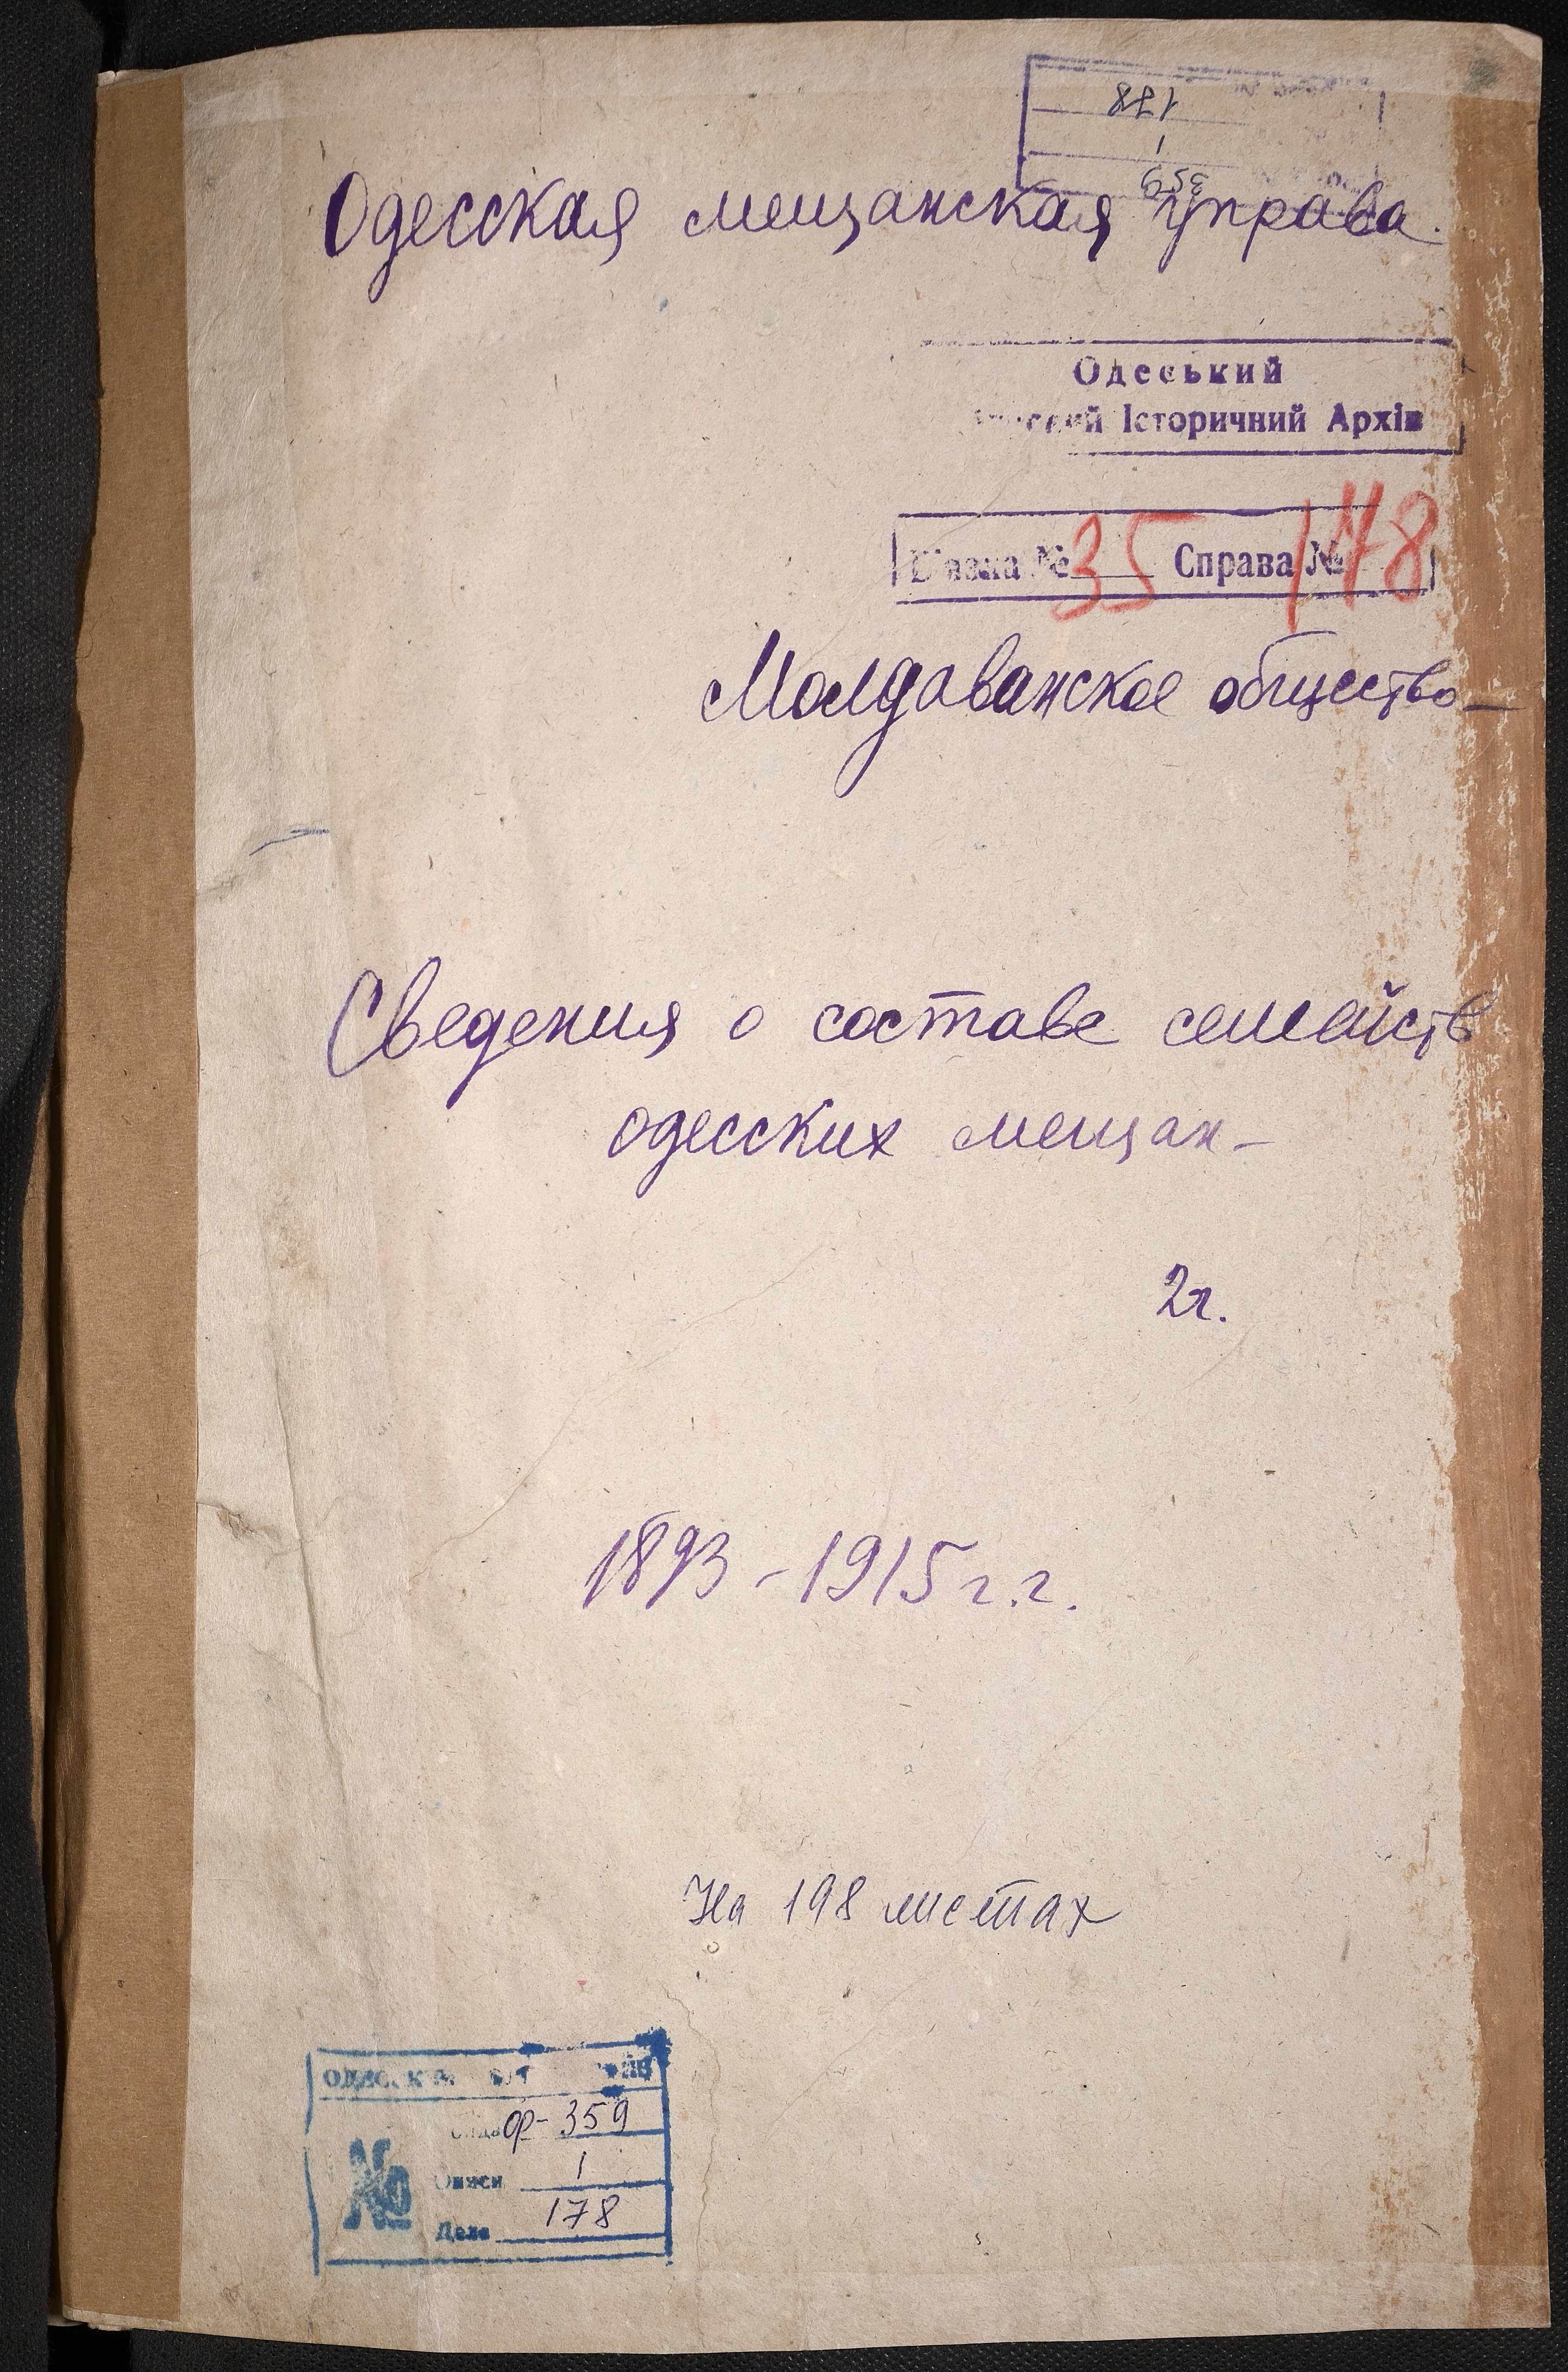 178
1
359
Одесская мещанская управа.
Одеський
Історичний Архів
№ 35 Справа № 178
Молдаванское общество
Сведения о составе семейств
одесских мещан
2г.
1893 - 1915 г.г.
На 198 листах
ф- 359
№
Описи 1
Дело 178